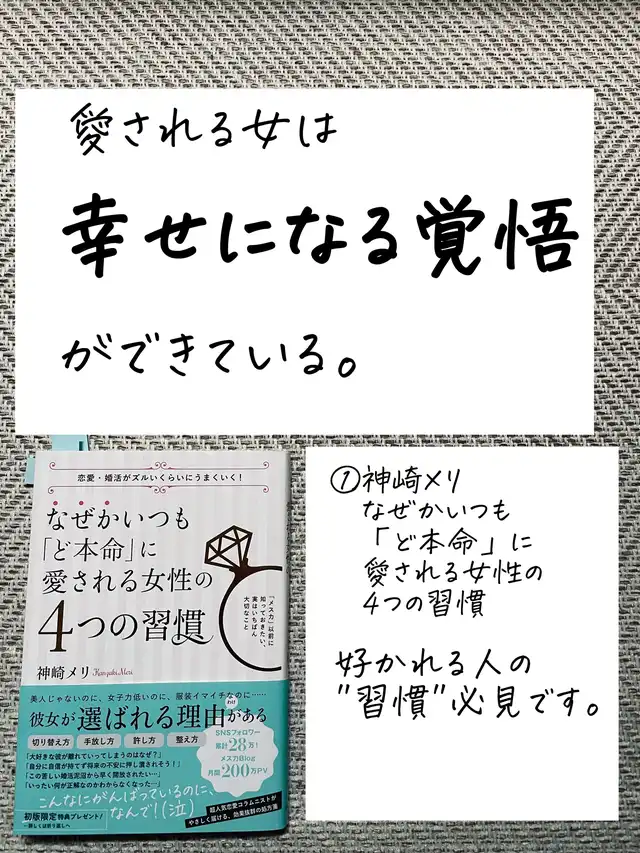 愛される女は
幸せになる覚悟
ができている。
恋愛・婚活がズルいくらいにうまくいく!
なぜかいつも
「ど本命」に
愛される女性の
4つの習慣
「メス力」以前に
知っておきたい、
実はいちばん
大切なこと
神崎メリ Kanzaki Meri
美人じゃないのに、女子力低いのに、服装イマイチなのに……
彼女が選ばれる理由がある
わけ
切り替え方 手放し方 許し方 整え方
「大好きな彼が離れていってしまうのはなぜ?」
「自分に自信が持てず将来の不安に押し潰されそう!」
「この苦しい婚活泥沼から早く開放されたい…」
「いったい何が正解なのかわからなくなった…」
SNSフォロワー
累計28万!
メス力Blog
月間200万PV
こんなにがんばっているのに、
なんで!(泣)
初版限定特典プレゼント!
詳しくは折り返しへ
超人気恋愛コラムニストが
やさしく届ける、効果抜群の処方箋
①神崎メリ
なぜかいつも
「ど本命」に
愛される女性の
4つの習慣
好かれる人の
"習慣"必見です。